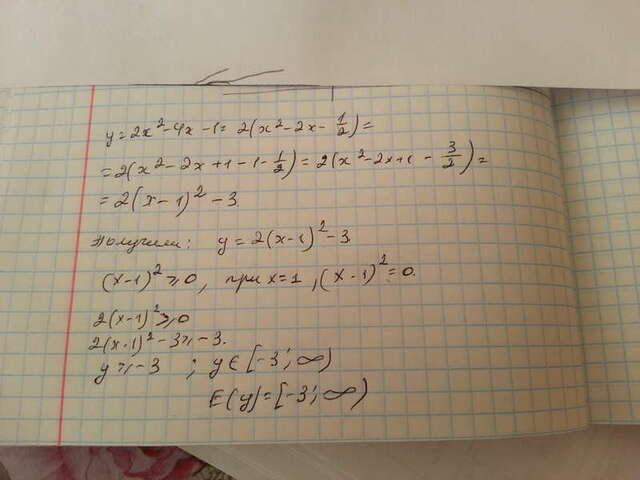 y = 2x² - 4x - 1 = 2(x² - 2x - 1/2) =
= 2(x² - 2x + 1 - 1 - 1/2) = 2(x² - 2x + 1 - 3/2) =
= 2(x - 1)² - 3
Получили: y = 2(x - 1)² - 3.
(x - 1)² ⩾ 0, при x = 1, (x - 1)² = 0.
2(x - 1)² ⩾ 0
2(x - 1)² - 3 ⩾ -3.
y ⩾ -3 ; y ∈ [-3; ∞)
E(y) = [-3; ∞)